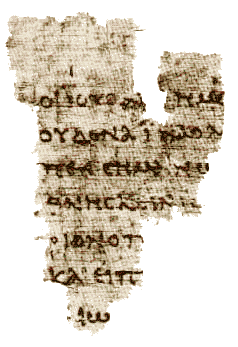 ΟΙ ΙΟΥΔΑΙ ΗΜΕ
ΟΥΔΕΝΑ ΙΝΑ Ο Λ
ΠΕΝ CΗΜΑΙΝΩ
ΘΝΗCΚΕΙΝ
ΡΙΟΝ Ο Π
ΚΑΙ ΕΙΠ
ΙΩ